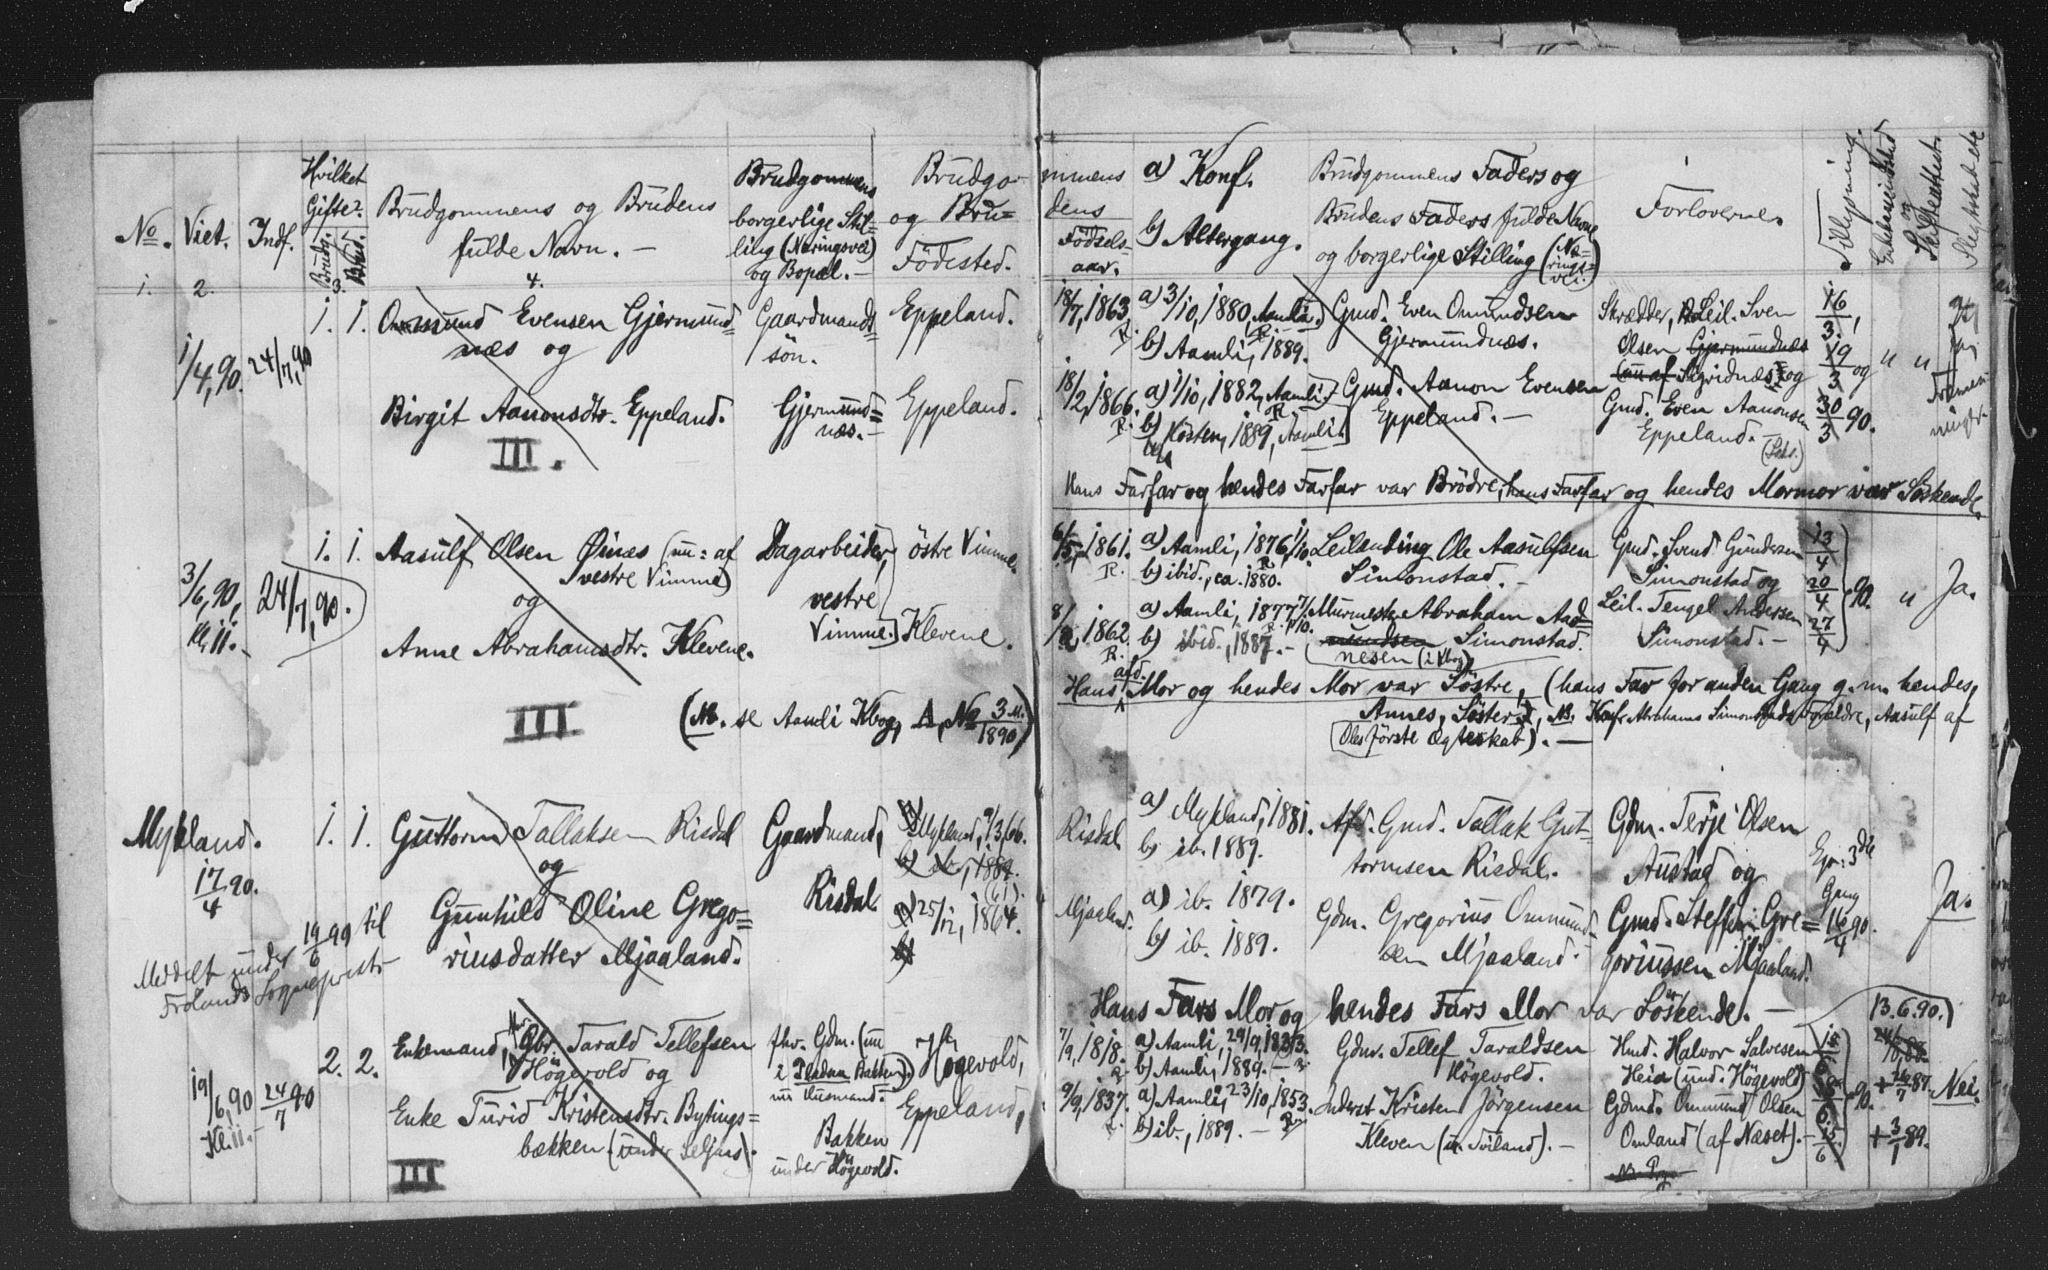 No. Viet. Indf.
Hvilket
Gifte?
Brudg. Brud.
Brudgommens og Brudens
fulde Navn. —
Brudgommens
borgerlige Stil-
ling (Næringsvei)
og Bopæl. —
Brudgo-
og Bru=
Födested.
1. 2. 3. 4.
1/4, 90. 24/7, 90
1. 1. Omund Evensen Gjermund=
næs og
Birgit Aanonsdtr. Eppeland.
III.
Gaardmands
sön.
Gjermund=
næs. —
Eppeland.
Eppeland.
3/6, 90,
Kl. 11. —
24/7, 90.
1. 1. Aasulf Olsen Øinæs (nu: af
vestre Vimme)
og
Anne Abrahamsdtr. Klevene.
III
Dagarbeider,
vestre
Vimme.
östre Vimme.
Klevene.
(NB. se Aamli Kbog, A, No 3 M. 1890)
Mykland.
17/4 90.
1. 1. Guttorm Tallaksen Risdal
og
Gunhild Oline Grego=
riusdatter Mjaaland.
Gaardmand,
Risdal.
Mykland, 9/3, 66.
b) ib., 1889.
25/12, 1864.
Meddelt under 19/6 99 til
Frolands Sogneprest
19/6, 90
Kl. 11. —
24/7 90
2. 2. Enkemand, Gbr. Tarald Tellefsen
Högevold og
Enke Turid Kristensdtr. Bytings=
bækken. (under Seljaas).
III
fhv. Gdm. (nu
i Pladsen Bakken)
nu Husmand.
Bakken
under Högevold.
Högevold,
Eppeland,
mmens
dens
Födsels-
aar.
a) Konf.
b) Altergang.
Brudgommens Faders og
Brudens Faders fulde Navne
og borgerlige Stilling (Næ-
rings=
vei.)
Forloverne.
Tillysning.
Enkemandsd
og
Skifteattest.
Slegtskab etc
18/7, 1863.
a) 3/10, 1880, Aamli.
b) Aamli, 1889.
Gmd. Even Omundsen
Gjermundnæs.
Skrædder, Leil. Sven
Olsen Gjermundnæs
(nu af Sigridnæs) og
Gmd. Even Aanonsen
Eppeland. —
16/3,
19/3 og
30/3 90.
" "
18/2, 1866.
a) 1/10, 1882, Aamli.
b) Hösten, 1889, Aamli.
Gmd. Aanon Evensen
Eppeland. —
Hans Farfar og hendes Farfar var Brödre, hans Farfar og hendes Mormor var Söskende.
1861.
a) Aamli, 1876, 1/10.
b) ibid., ca. 1880.
Leilænding Ole Aasulfsen
Simonstad. —
Gmd. Svend Gundersen
Simonstad og
Leil. Tengel Andersen
Simonstad. —
13/4
20/4
27/4
90. " Ja.
1862.
a) Aamli, 1877, 7/10.
b) ibid., 1887. —
Murmester Abraham Aad=
nesen (i Kbog)
Simonstad.
Hans afd. Mor og hendes Mor var Söstre, (hans Far for anden Gang g. m. hendes,
Annes, Söster), NB. Konfr. Abrahams Simonstads Forældre, Aasulf af
Oles förste Ægteskab). —
Risdal
a) Mykland, 1881.
b) ib. 1889.
Afd. Gmd. Tallak Gut-
tormsen Risdal.
Gdm. Terje Olsen
Austad og
Gmd. Steffen Gre=
goriussen Mjaaland.
3die
Gang
16/4 90.
Ja.
Mjaaland.
a) ib. 1879.
b) ib. 1889.
Gdm. Gregorius Ommund-
sen Mjaaland.
Hans Fars Mor og hendes Fars Mor var Söskende. —
7/9, 1818.
a) Aamli, 29/9, 1833.
b) Aamli, 1889. —
Gdmr. Tellef Taraldsen
Högevold.
Hmd. Halvor Salvesen
Heia (und. Högevold)
Gdmd. Ommund Olsen
Omland (af Næset). —
90.
13.6.90.
+ 26/7 87.
+ 3/1 89.
Nei.
9/9, 1837.
a) Aamli, 23/10, 1853.
b) ib., 1889. —
Inderst Kristen Jörgensen
Kleven (u. Toiland). —